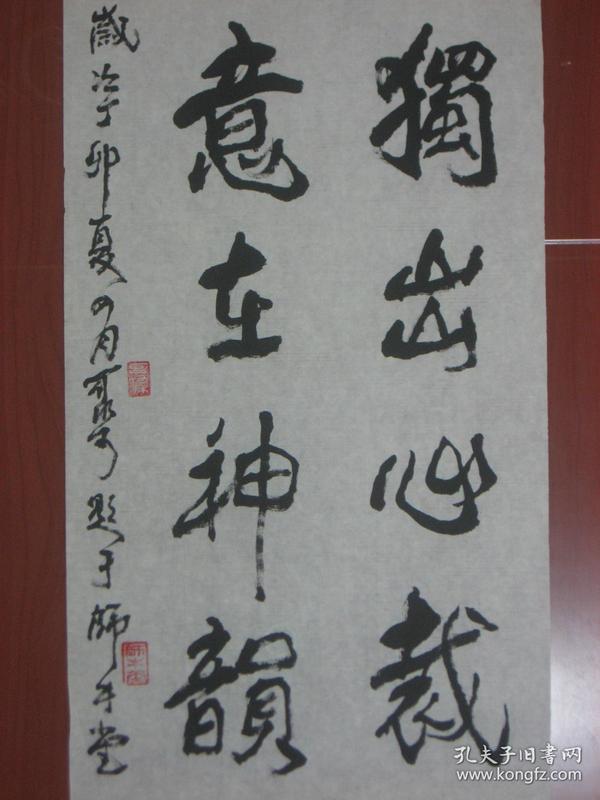 獨出心裁
意在神韻
歲次丁卯夏四月
題于師牛堂
孔夫子旧书网
www.kongfz.com